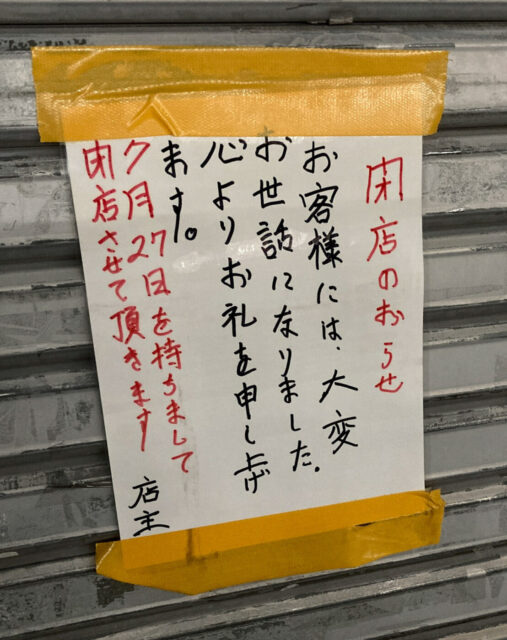 閉店のおらせ
お客様には、大変
お世話になりました.
心よりお礼を申し上げ
ます。
7月27日を持ちまして
閉店させて頂きます
店主